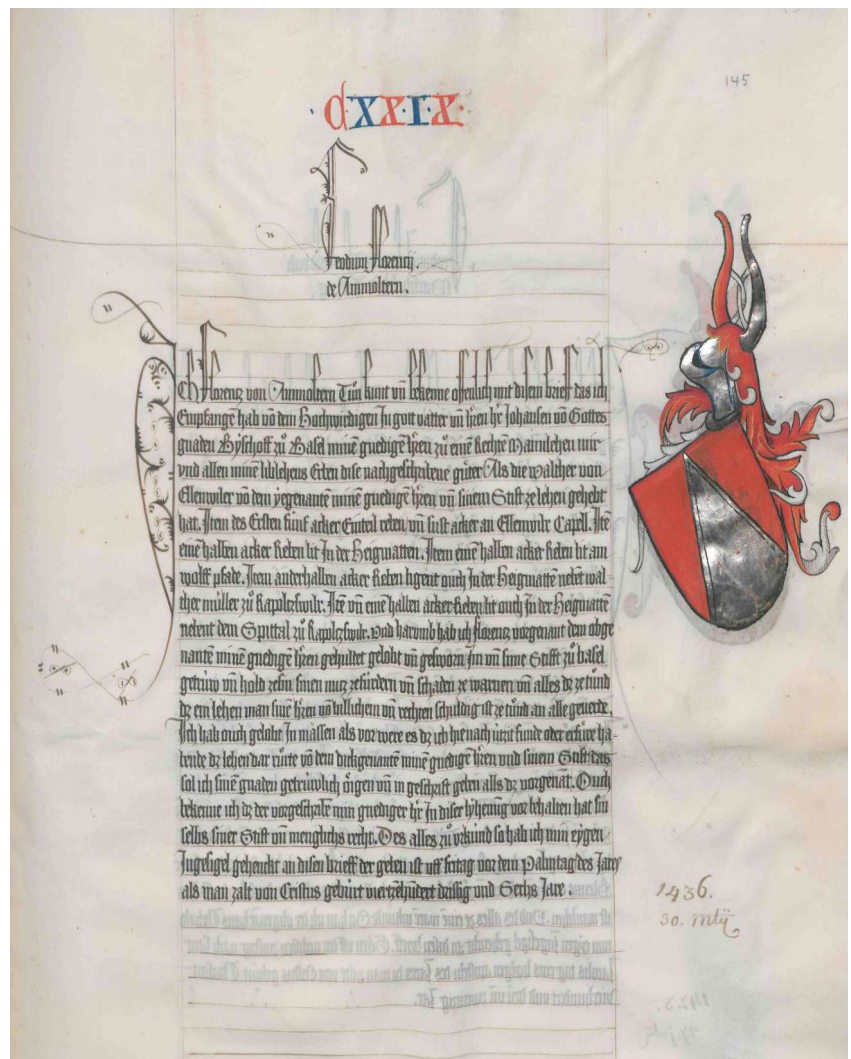 145
·CXX·I·X·
Feodum Florencij.
de Ammoltern.
Ich Florenz von Ammoltern Tůn kunt vn̄ bekenne offenlich mit disem brief das ich
Empfangē hab vō dem Hochwirdigen In gott vatter vn̄ h̄ren h̄r Johansen vō Gottes
gnaden Byschoff zů Basel minē gnedigē h̄ren zů einē Rechtē Mannlehen mir
vnd allen minē liblehens Erben dise nachgeschribene gůter Als die walther von
Ellenwiler vō dem yegenantē minē gnedigē h̄ren vn̄ sinem Stift ze lehen gehebt
hat. Item des Ersten fünf acker Einteil reben vn̄ sust acker an Ellenwilr Capell. Itē
einē halben acker Reben lit In der Heigmatten. Item einē halben acker Reben lit am
wolff pfade. Item anderhalben acker Reben ligent ouch In der Heigmattē nebēt wal
ther müller zů Rapoltzwilr. Itē vn̄ einē halben acker Reben lit ouch In der Heigmattē
nebent dem Spittal zů Rapoltzwilr. Vnd harumb hab ich florenz vorgenant dem obge
nantē minē gnedigē h̄ren gehuldet gelobt vn̄ gesworn Im vn̄ sime Stifft zů basel
getrüw vn̄ hold ze sin sinen nutz ze fürdern vn̄ schaden ze warnen vn̄ alles dz ze tůnd
dz ein lehen man sinē h̄ren vō billichem vn̄ rechten schuldig ist ze tůnd an alle geuerde.
Ich hab ouch gelobt In massen als vor were es dz ich hienach ützit funde oder erfüre ha-
bende dz lehen dar rürte vō dem dickgenantē minē gnedigē h̄ren vnd sinem Stift das
sol ich sinē gnaden getrüwlich ōigen vn̄ in geschrift geben alls dz vorgenāt. Ouch
bekenne ich dz der vorgeschribē min gnediger h̄r In diser lyhenūg vor behalten hat sin
selbs siner Stift vn̄ menglichs recht. Des alles zů vrkünd so hab ich min eygen
Ingesigel gehenckt an disen brieff der geben ist vff fritag vor dem Palmtag des Jares
als man zalt von Cristus gebürt viertzehundert drissig vnd Sechs Jare.
1436.
30. Mtij